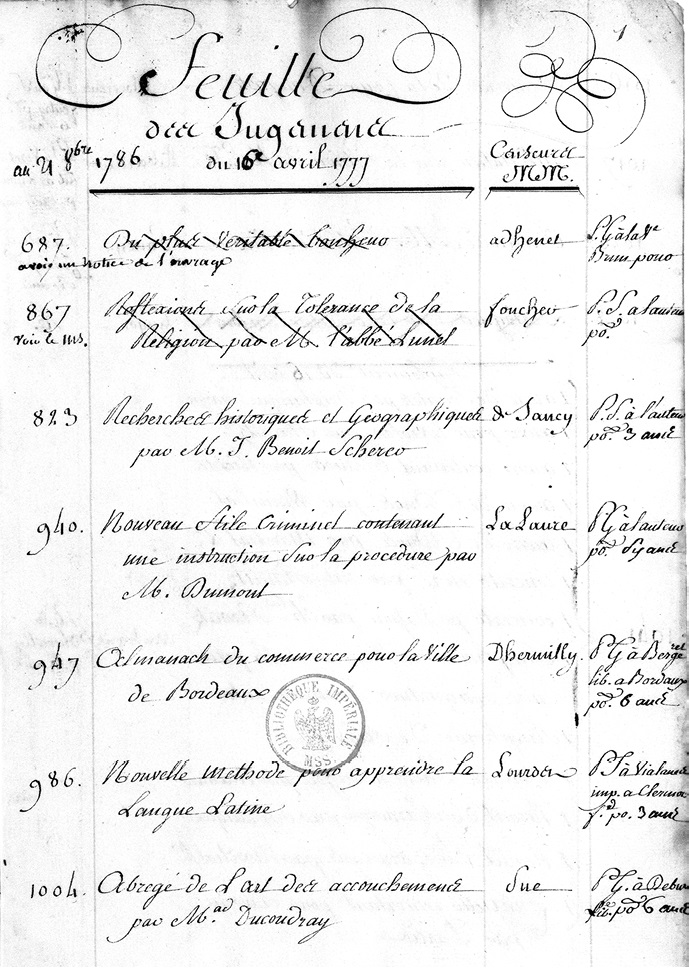 1
Feuille
des Jugemens
au 21 8bre 1786 du 16e avril 1777
Censeurs
MM.
687. Du plus veritable bonheur adhenet P. G à la Ve
avoir un notice de l'ouvrage
867 Reflexions sur la Tolerance de la foucher P. S. a lauteur
voir le ms. Religion par M. l'abbé Lunet po.
823 Recherches historiques et Geographiques de Sancy P. S. à l'auteur
par M. J. Benoit Scherer po. 3 ans
940. Nouveau Stile Criminel contenant La Laure P G à lauteur
une instruction sur la procedure par po.
M. Dumont
947 Almanach du commerce pour la Ville Dhermilly P G à Berge
de Bordeaux lib. a Bordaux
po. 6 ans
BIBLIOTHÈQUE IMPÉRIALE
MSS.
986. Nouvelle methode pour apprendre la Lourdet P S à Vialanes
Langue Latine imp. a Clermo
fd po. 3 ans
1004. Abregé de L'art des accouchemens Sue P G. à Debure
par Mad Ducoudray lib. po. 6 ans